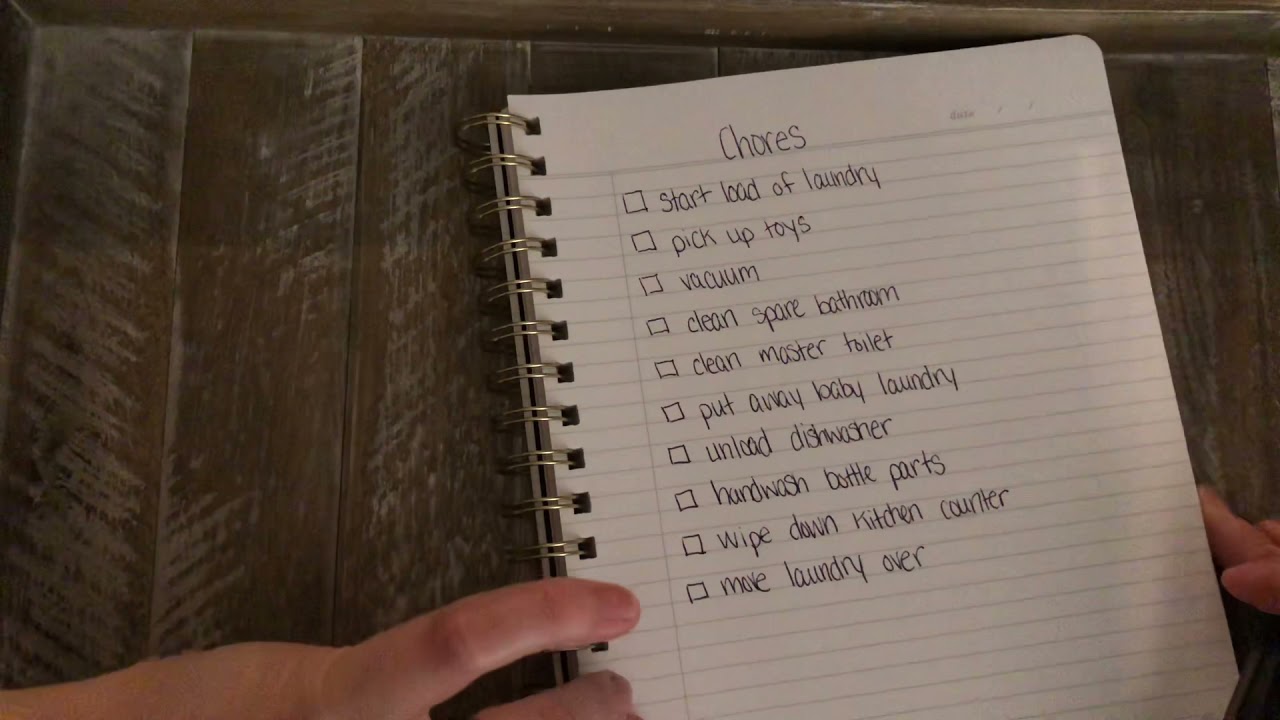 date / /
Chores
start load of laundry
pick up toys
vacuum
clean spare bathroom
clean master toilet
put away baby laundry
unload dishwasher
handwash bottle parts
wipe down kitchen counter
move laundry over